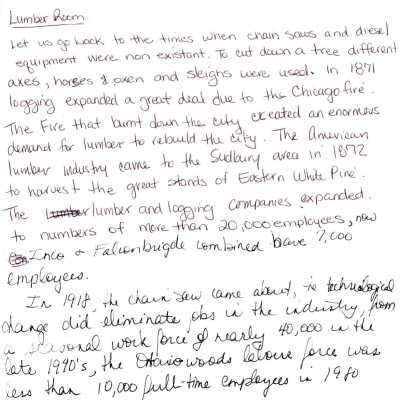 Lumber Room
Let us go back to the times when chain saws and diesel
equipment were non existant. To cut down a tree different
axes, horses & oxen and sleighs were used. In 1871
logging expanded a great deal due to the Chicago fire.
The Fire that burnt down the city created an enormous
demand for lumber to rebuild the city. The American
lumber industry came to the Sudbury area in 1872
to harvest the great stands of Eastern White Pine.
The lumber and logging companies expanded
to numbers of more than 20,000 employees, now
Inco & Falconbridge combined have 7,000
employees.
In 1918, the chain saw came about, the technological
change did eliminate jobs in the industry, from
a seasonal work force of nearly 40,000 in the
late 1940's, the Ontario woods labour force was
less than 10,000 full-time employees in 1980